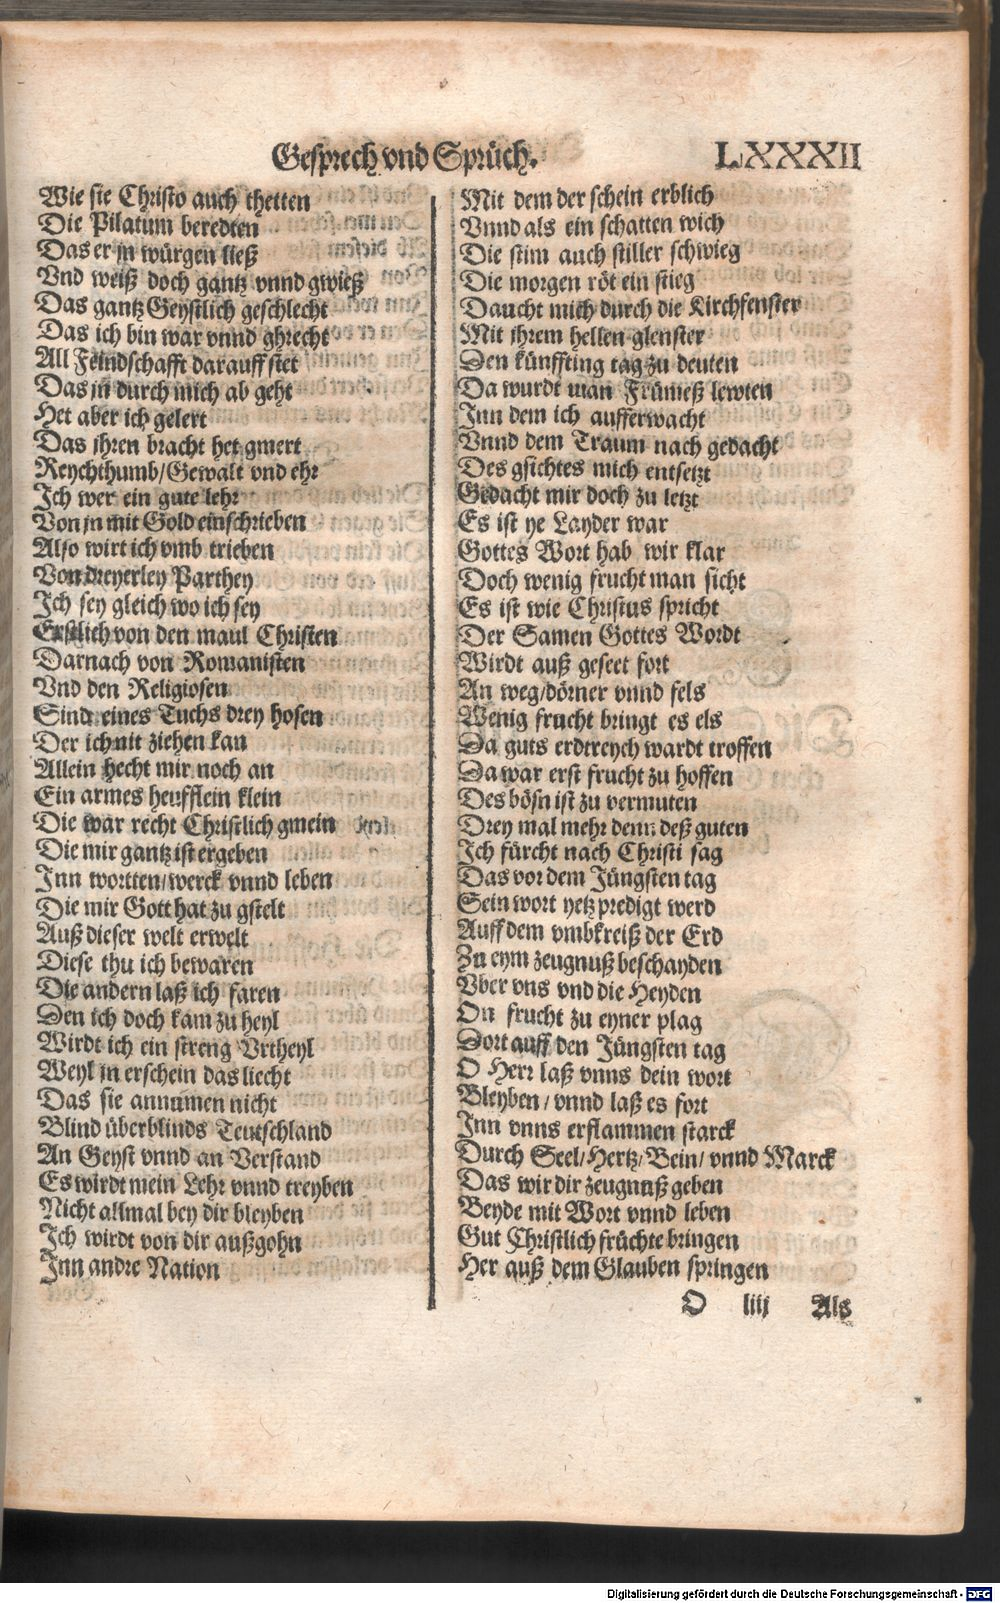 Gesprech vnd Sprüch.
LXXXII
Wie sie Christo auch thetten
Die Pilatum beredten
Das er jn würgen ließ
Vnd weiß doch gantz vnnd gwieß
Das gantz Geystlich geschlecht
Das ich bin war vnnd ghrecht
All Feindschafft darauff stet
Das jn durch mich ab geht
Het aber ich gelert
Das jhren bracht het gmert
Reychthumb/Gewalt vnd ehr
Ich wer ein gute lehr
Von jn mit Gold einschrieben
Also wirt ich vmb trieben
Von dreyerley Parthey
Ich sey gleich wo ich sey
Erstlich von den maul Christen
Darnach von Romanisten
Vnd den Religiosen
Sind eines Tuchs drey hosen
Der ich nit ziehen kan
Allein hecht mir noch an
Ein armes heufflein klein
Die war recht Christlich gmein
Die mir gantz ist ergeben
Inn wortten/werck vnnd leben
Die mir Gott hat zu gstelt
Auß dieser welt erwelt
Diese thu ich bewaren
Die andern laß ich faren
Den ich doch kam zu heyl
Wirdt ich ein streng Vrtheyl
Weyl jn erschein das liecht
Das sie annumen nicht
Blind überblinds Teutschland
An Geyst vnnd an Verstand
Es wirdt mein Lehr vnnd treyben
Nicht allmal bey dir bleyben
Ich wirdt von dir außgohn
Inn andre Nation
Mit dem der schein erblich
Vnnd als ein schatten wich
Die stim auch stiller schwieg
Die morgen röt ein stieg
Daucht mich durch die Kirchfenster
Mit jhrem hellen glenster
Den künffting tag zu deuten
Da wurdt man Frümeß lewten
Inn dem ich aufferwacht
Vnnd dem Traum nach gedacht
Des gsichtes mich entsetzt
Gedacht mir doch zu letzt
Es ist ye Layder war
Gottes Wort hab wir klar
Doch wenig frucht man sicht
Es ist wie Christus spricht
Der Samen Gottes Wordt
Wirdt auß geseet fort
An weg/dörner vnnd fels
Wenig frucht bringt es els
Da guts erdtreych wardt troffen
Da war erst frucht zu hoffen
Des bösn ist zu vermuten
Drey mal mehr denn deß guten
Ich fürcht nach Christi sag
Das vor dem Jüngsten tag
Sein wort yetz predigt werd
Auff dem vmbkreiß der Erd
Zu eym zeugnuß beschayden
Vber vns vnd die Heyden
On frucht zu eyner plag
Dort auff den Jüngsten tag
O Herr laß vnns dein wort
Bleyben/ vnnd laß es fort
Inn vnns erflammen starck
Durch Seel/Hertz/Bein/ vnnd Marck
Das wir dir zeugnuß geben
Beyde mit Wort vnnd leben
Gut Christlich früchte bringen
Her auß dem Glauben springen
O iiij Als
Digitalisierung gefördert durch die Deutsche Forschungsgemeinschaft - DFG